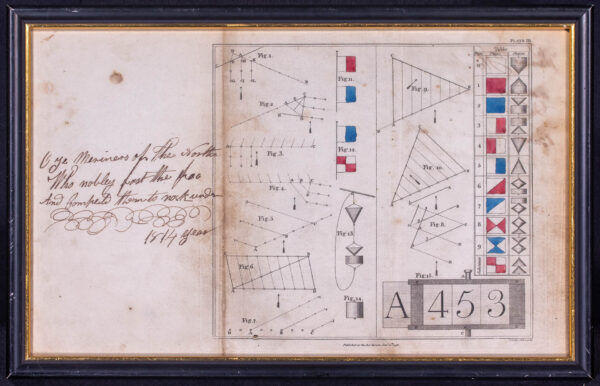 O ye Meriners of the North
Who nobly post the foe
And compell them to nock under
1814 year
PLATE III.
Table
Fig. 1.
Fig. 2
Fig. 3.
Fig. 4.
Fig. 5.
Fig. 6
Fig. 7.
Fig. 11.
Fig. 12.
Fig. 13.
Fig. 14.
Fig. 9.
Fig. 10.
Fig. 8.
Fig. 15.
1
2
3
4
5
6
7
8
9
A 453